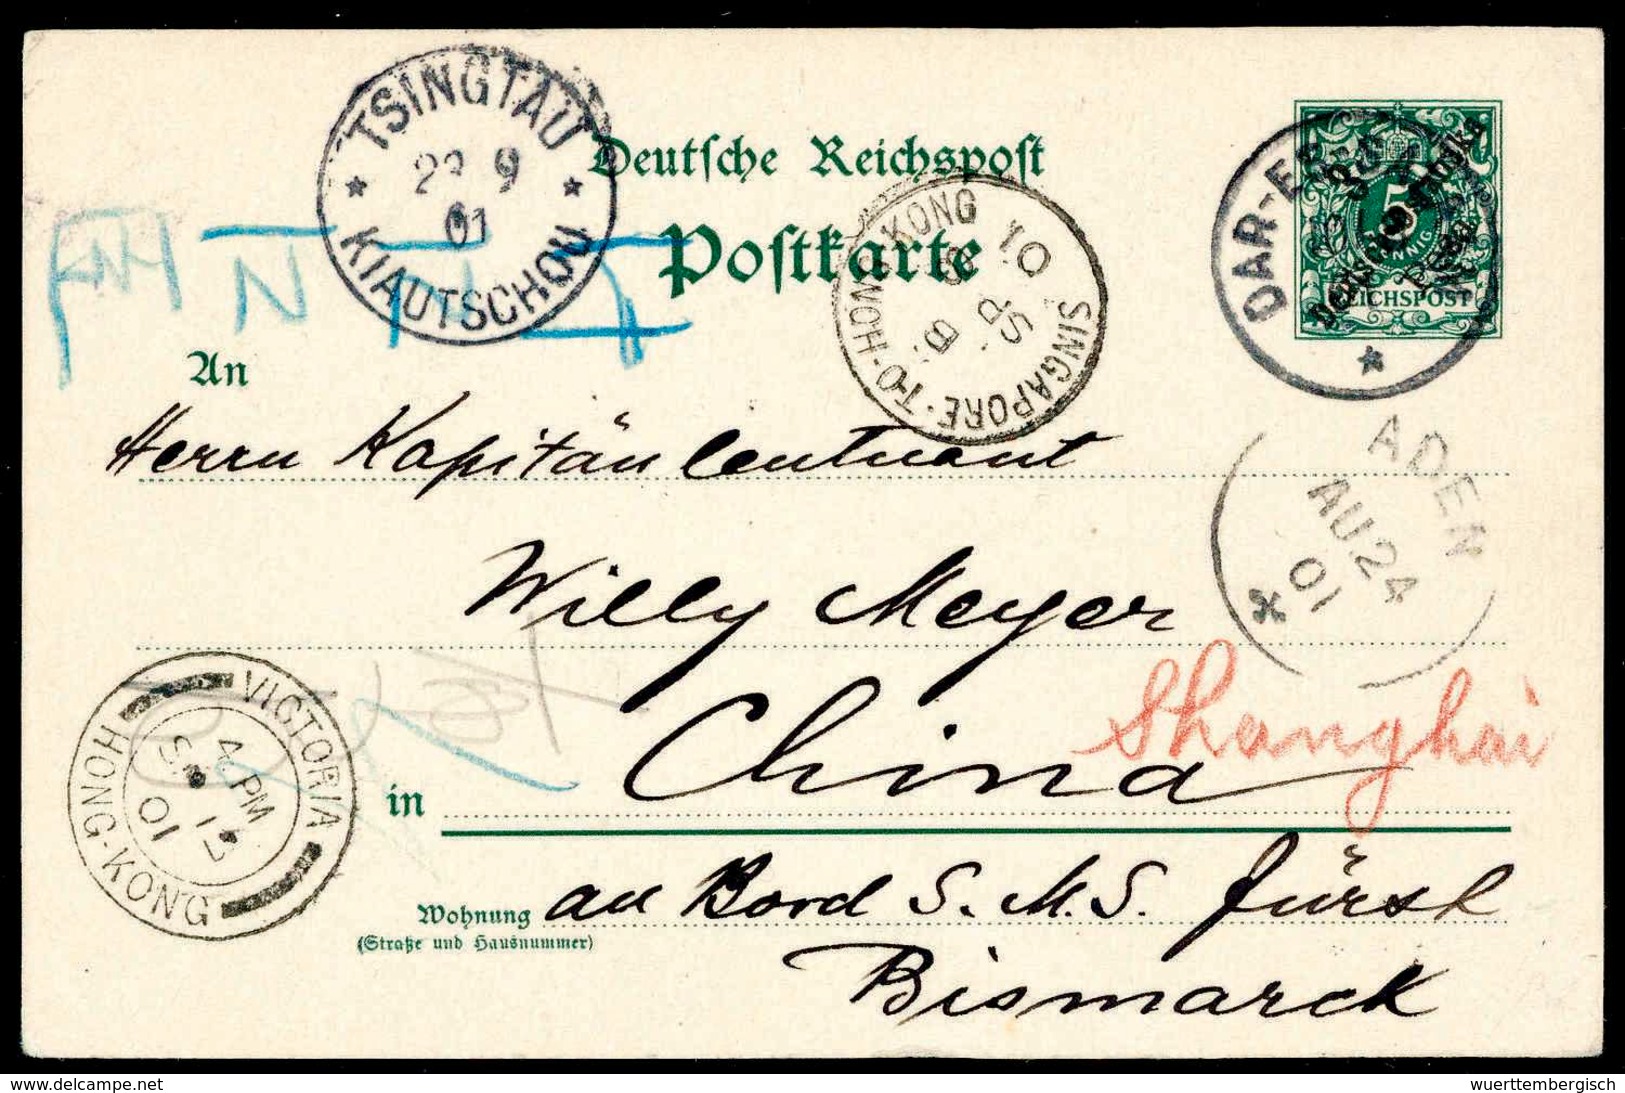 TSINGTAU
9
01
KIAUTSCHOU
Deutsche Reichspost
Postkarte
SINGAPORE-TO-HONG KONG
DAR-ES
5
REICHSPOST
An
Herrn Kapitänleutnant
ADEN
AU 24
01
Willy Meyer
China
Shanghai
in
VICTORIA
4 PM
01
HONG-KONG
an Bord S.M.S. Fürst
Wohnung
(Straße und Hausnummer)
Bismarck
www.delcampe.net
wuerttembergisch